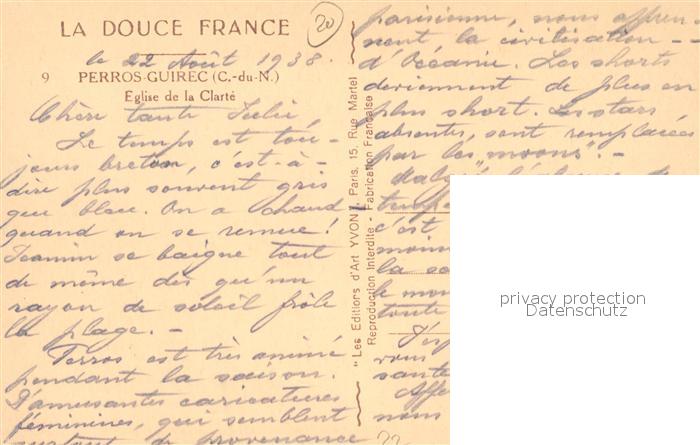 LA DOUCE FRANCE
20
le 22 Août 1938.
9 PERROS-GUIREC (C.-du-N.)
Eglise de la Clarté
Chère tante
Le temps est tou-
jours breton, c'est-à-
dire plus souvent gris
que bleu. On a chaud
quand on se remue!
se baigne tout
de même dès qu'un
rayon de soleil frôle
la plage. -
Perros est très animé
pendant la saison.
D'amusantes caricatures
féminines, qui semblent
surtout de provenance
"Les Editions d'Art YVON", Paris, 15, Rue Martel
Reproduction Interdite - Fabrication Française
parisienne, nous appren-
nent la civilisation --
d'Océanie. Les shorts
deviennent de plus en
plus short. Les stars
absentes, sont remplacées
par les "moons". -
Malgré
temps
c'est
moins
la
le
toute
J'esp
vous
santé
Affe
nous
22
privacy protection
Datenschutz